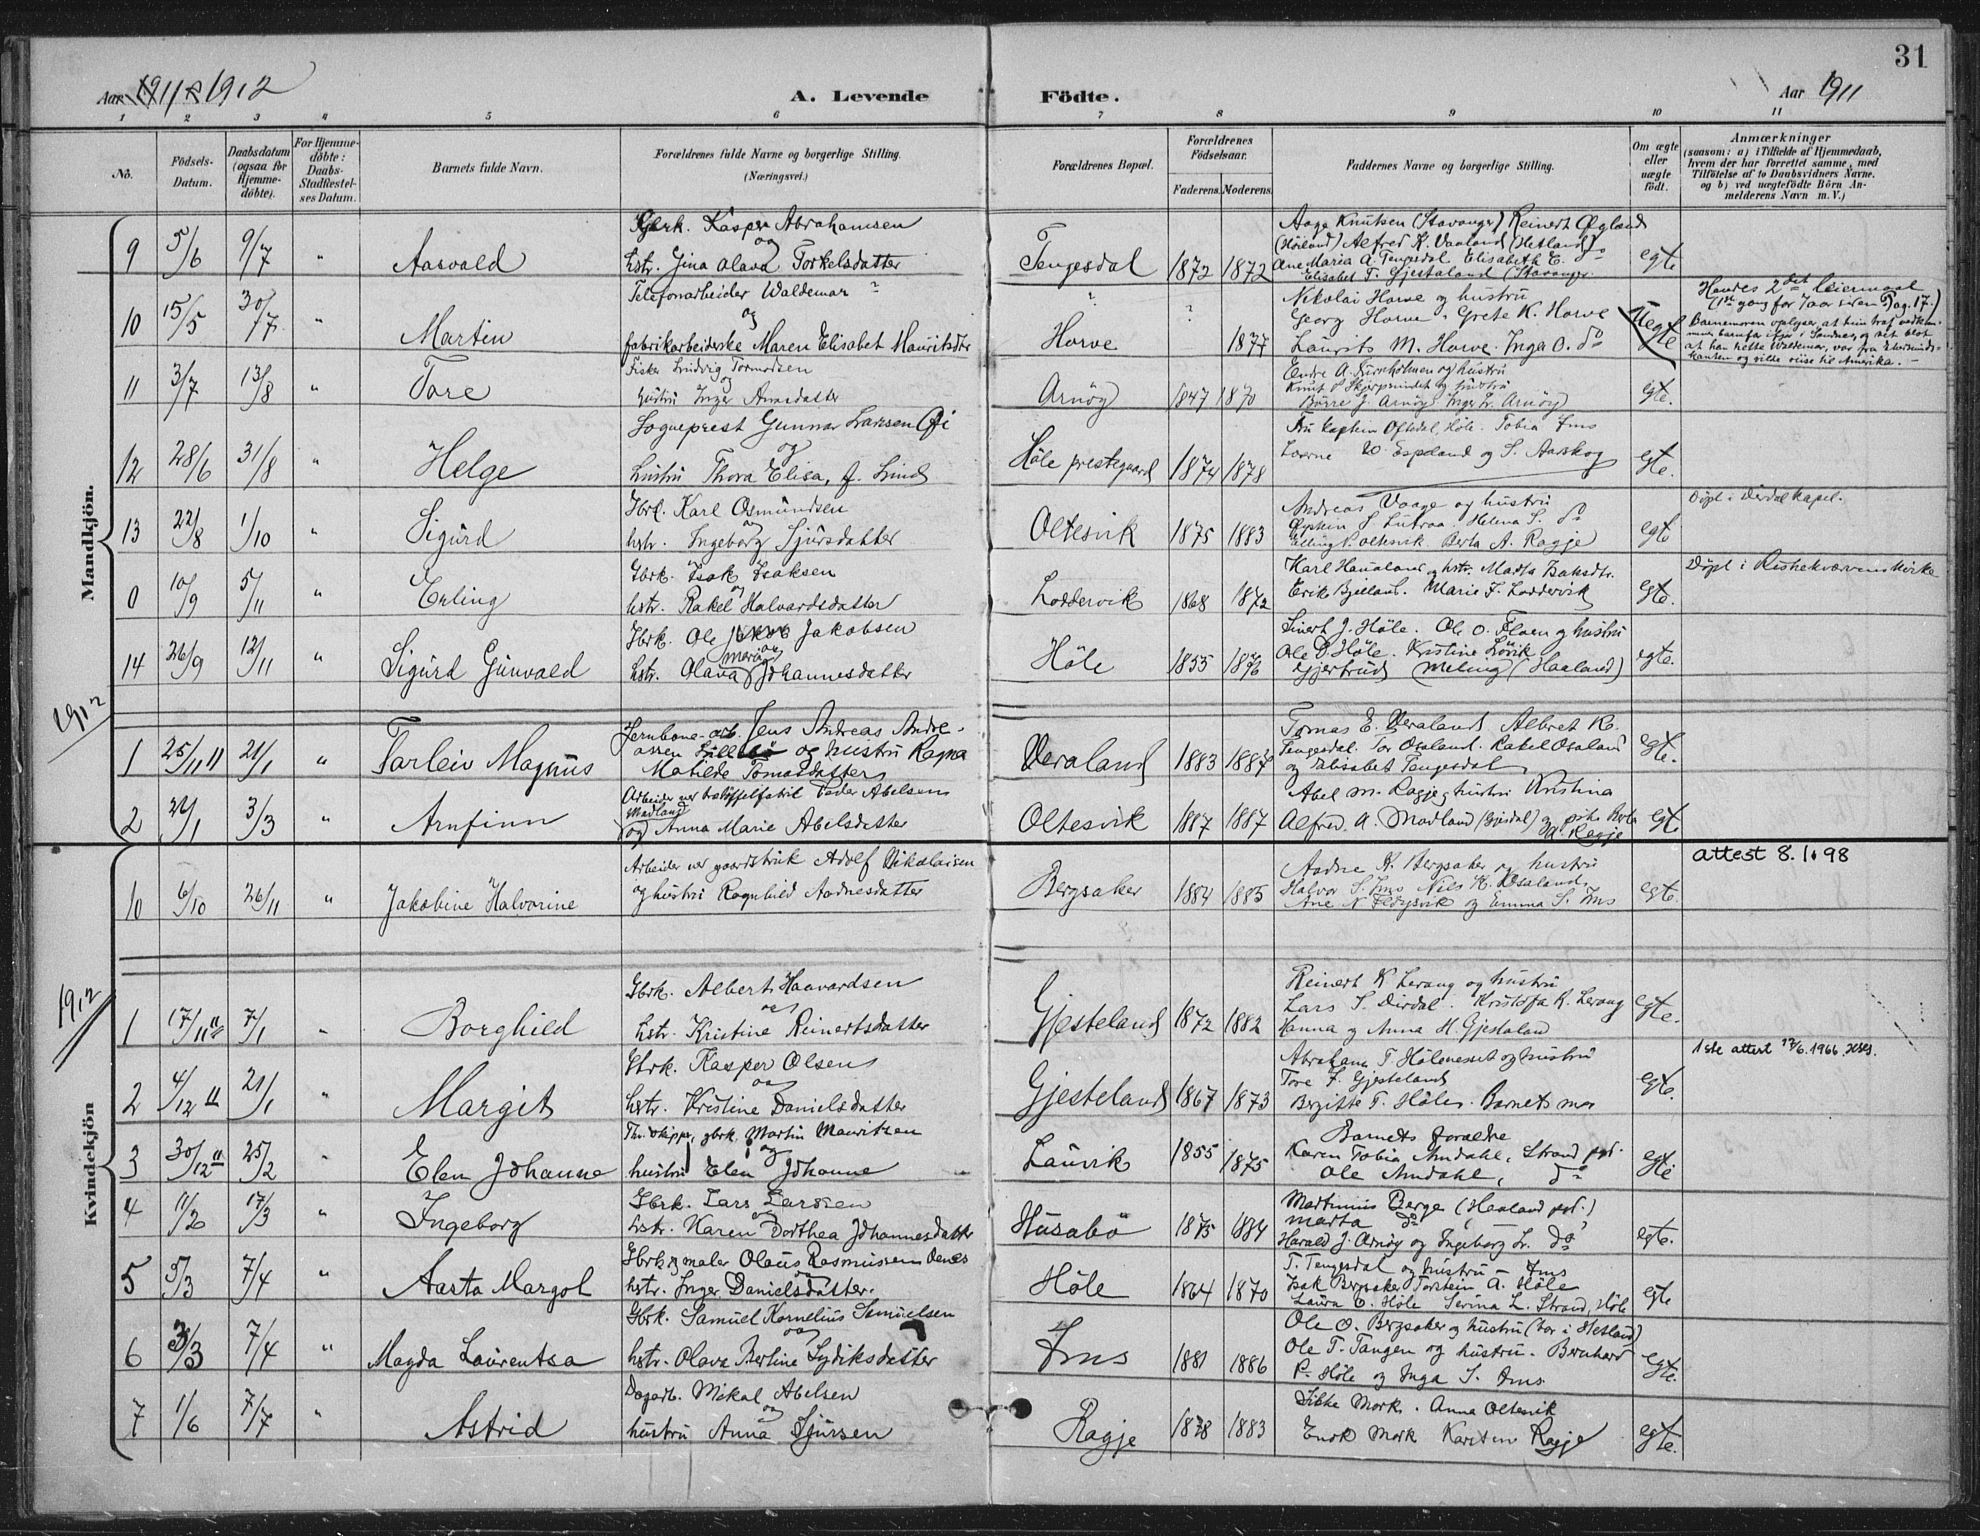 31
Aar 1911 & 1912
A. Levende Födte.
Aar 1911
1 2 3 4 5 6 7 8 9 10 11
No.
Födsels-Datum.
Daabsdatum (ogsaa for Hjemme-döbte).
For Hjemme-döbte: Daabs-Stadfæstel-ses Datum.
Barnets fulde Navn.
Forældrenes fulde Navne og borgerlige Stilling. (Næringsvei.)
Forældrenes Bopæl.
Forældrenes Födselsaar.
Faderens. Moderens.
Faddernes Navne og borgerlige Stilling.
Om ægte eller uægte födt.
Anmærkninger
(saasom: a) i Tilfælde af Hjemmedaab, hvem der har forrettet samme, med Tilföielse af to Daabsvidners Navne. og b) ved uægtefödte Börn Anmelderens Navn m. V.)
Mandkjön.
9 5/6 9/7 " Aasvald
Gbrk. Kasper Abrahamsen og
hstr. Gina Olava Torkelsdatter
Tengesdal 1872 1872
Aage Knutsen (Stavanger) Reinert Øgland
(Høiland) Alfred K. Vaaland (Hetland)
Ane Maria A. Tengesdal Elisabeth E. do
Elisabet T. Gjestaland (Stavanger
egte
10 15/5 30/7 " Martin
Telefonarbeider Waldemar ?
og
fabrikarbeiderske Maren Elisabet Mauritsdtr
? Horve ? 1877
Nikolai Horve og hustru
Georg Horve. Grete K. Horve
Laurits M. Horve. Inga O. do
Uegte
Hendes 2det leiermaal
(1ste gang for 7 aar siden Pag. 17.)
11 3/7 13/8 " Tore
Fisker Ludvig Tormodsen
og
hustru Inger Amasdatter
Arnöy 1847 1870
Knut S Skjørpmindet og hustru
Börre J. Arnöy Inger L. Arnöy
egte.
12 28/6 31/8 " Helge
Sogneprest Gunnar Larsen Øi
og
hustru Thora Elisa, f. Lind
Höle prestegaard 1874 1878
Fru kaptein Oftedal, Höle. Tobia Ims
W. Espeland og S. Aarskog
egte.
13 22/8 1/10 " Sigurd
Gbrk. Karl Osmundsen
og
hstr. Ingeborg Sjursdatter
Oltesvik 1875 1883
Andreas Vaage og hustru
S. Lutraa. Helena S. do
Elling P. Oltesvik. Berta A. Ragje
egte
Döpt i Dirdal kapel.
0 10/9 5/11 " Erling
Gbrk. Isak Isaksen
og
hstr. Rakel Halvardsdatter
Loddervik 1868 1872
Karl Haualand og hstr. Madsa Isaksdtr.
Erik Bjelland. Marie F. Loddervik
egte.
14 26/9 12/11 " Sigurd Gunvald
Gbrk. Ole Jakob Jakobsen
og
hstr. Olava Maria Johannesdatter
Höle 1855 1876
Sivert J. Höle. Ole O. Floen og hustru
Ole O. Höle. Kristine Lövik
Gjertrud Meling (Haaland)
egte.
1912
1 25/11 11 21/1 " Tarleiv Magnus
Jernbane-arb. Jens Andreas Andre-
assen og hustru Ragna
Matilde Tomasdatter
Veraland 1883 1887
Tomas E. Veraland Albret K.
Tengesdal Tor Osaland. Rakel Osaland
og Elisabet Tengesdal
egte.
2 24/1 3/3 " Arnfinn
Arbeider ved tretöffelfabrik Peder Abelsen
Madland
og Anna Marie Abelsdatter
Oltesvik 1887 1887
Abel M. Ragje og hustru Kristina
Alfred A. Madland (Gjesdal) og pike Berta
A. Ragje
egte
Kvindekjön
10 6/10 26/11 " Jakobine Halvorine
Arbeider ved gaardsbruk Adolf Nikolaisen
og hustru Ragnhild Aadnesdatter
Bergsaker 1884 1885
Aadne K. Bergsaker og hustru
Halvor S. Ims Nils K. Osaland.
Ane N. og Emma S. Ims
egte.
attest 8.10.98
1912
1 17/11 11 7/1 " Borghild
Gbrk. Albert Haavardsen
og
hstr. Kristine Reinertsdatter
Gjesteland 1872 1882
Reinert K Lerang og hustru
Lars S. Dirdal. Kristoffa R. Lerang
Hanna og Anna H. Gjestaland
egte.
2 4/12 11 21/1 " Margit
Gbrk. Kasper Olsen
og
hstr. Kristine Danielsdatter
Gjesteland 1867 1873
Abraham T. Hölenesset og hustru
Tore F. Gjesteland
Bergitte T. Höle. Barnets mor
egte.
1ste attest 17/6.1966
3 30/12 11 25/2 " Elen Johanne
Skipper, gbrk. Martin Mauritsen
og
hustru Elen Johanne
Lauvik 1855 1875
Barnets foraeldre
Karen Tobia Amdahl, Strand prd.
Ole Amdahl, do
egte
4 11/2 17/3 " Ingeborg
Gbrk. Lars Larsen
og
hstr. Karen Dorthea Johannesdatter
Husabö 1875 1884
Martinius Berge (Haaland prd.)
Marta do
Harald J. Arnöy og Ingeborg L. do
egte.
5 5/3 7/4 " Aasta Margot
Gbrk og maler Olaus Rasmussen
hstr. Inger Danielsdatter.
Höle 1864 1870
T. Tengesdal og hustru - Ims
Isak Bergsaker Torstein A. Höle
Laura O. Höle Serina L. Strand, Höle
egte
6 3/3 7/4 " Magda Laurentsa
Gbrk. Samuel Kornelius Samuelsen
og
hstr. Olava Bertine Sydiksdatter
Ims 1881 1886
Ole O. Bergsaker og hustru (bor i Hetland)
Ole T. Tangen og hustru. Bernhard
P. Höle og Inga S. Ims.
egte.
7 1/6 7/7 " Astrid
Dagarb. Mikal Abelsen
og
hustru Anna Sjursen
Ragje 1878 1883
Sikke Mork. Anna Oltesvik
Enok Mork Karsten Ragje
egte.